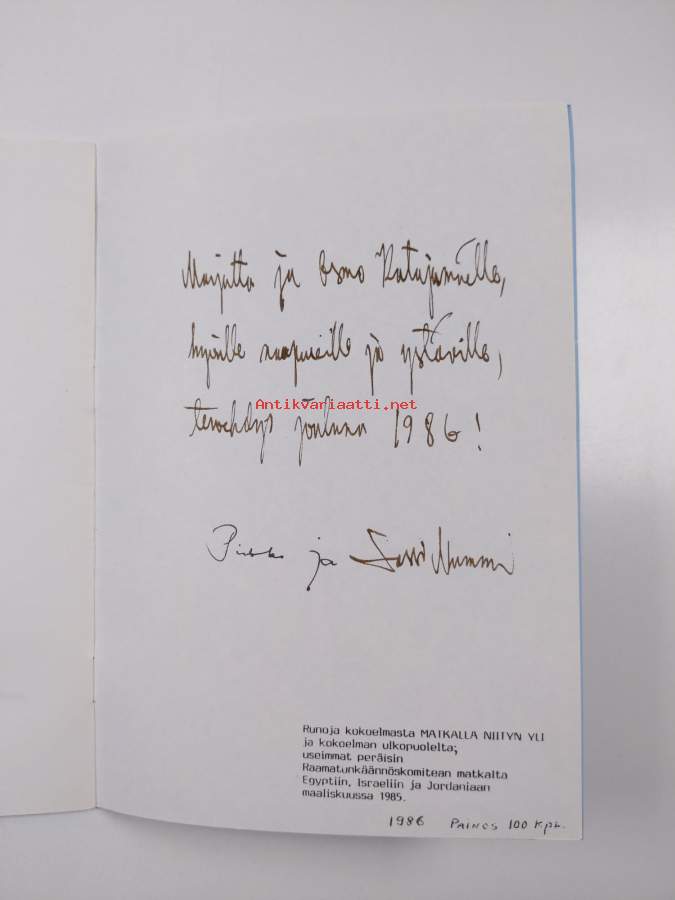 Marjatta ja Osmo Katajamäelle,
hyville naapureille ja ystäville,
Antikvariaatti.net
tervehdys jouluna 1986!
Pirkko ja Lassi Nummi
Runoja kokoelmasta MATKALLA NIITYN YLI
ja kokoelman ulkopuolelta;
useimmat peräisin
Raamatunkäännöskomitean matkalta
Egyptiin, Israeliin ja Jordaniaan
maaliskuussa 1985.
1986 PAINOS 100 Kpl.